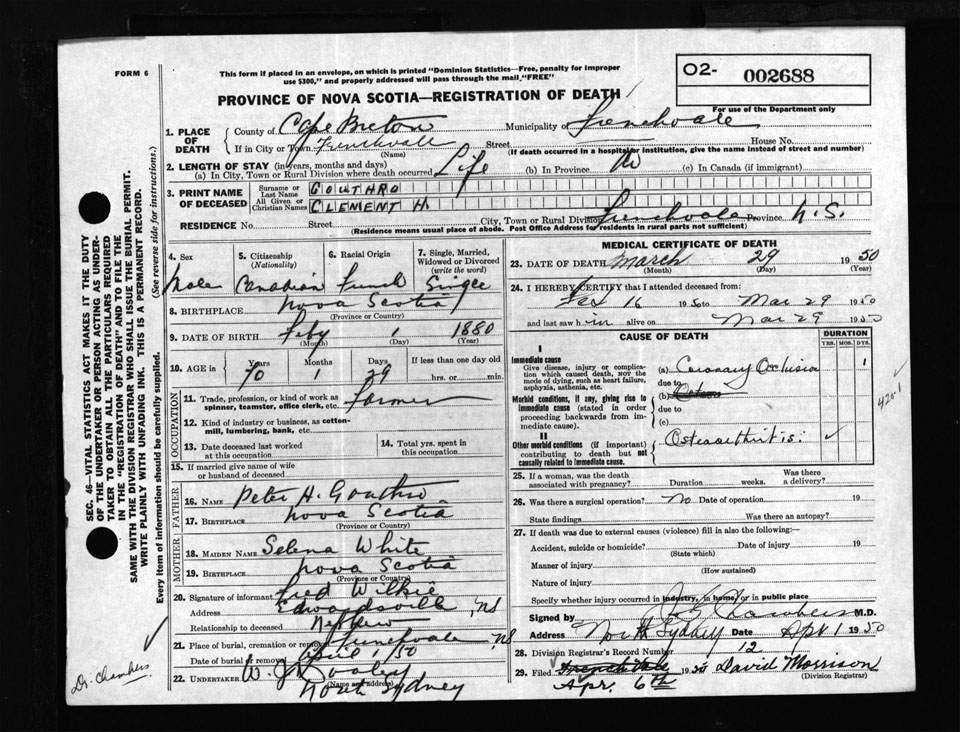 FORM 6
This form if placed in an envelope, on which is printed "Dominion Statistics—Free, penalty for improper
use $300," and properly addressed will pass through the mail "FREE"
O2- 002688
For use of the Department only
PROVINCE OF NOVA SCOTIA—REGISTRATION OF DEATH
1. PLACE OF DEATH
County of Cape Breton Municipality of Frenchvale
If in City or Town Frenchvale Street House No.
(Name) (If death occurred in a hospital or institution, give the name instead of street and number)
2. LENGTH OF STAY (in years, months and days)
(a) In City, Town or Rural Division where death occurred Life (b) In Province (c) In Canada (if immigrant)
3. PRINT NAME OF DECEASED
Surname or Last Name GOUTHRO
All Given or Christian Names CLEMENT H.
RESIDENCE No. Street City, Town or Rural Division Frenchvale Province N.S.
(Residence means usual place of abode. Post Office Address for residents in rural parts not sufficient)
4. Sex
Male
5. Citizenship (Nationality)
Canadian
6. Racial Origin
French
7. Single, Married, Widowed or Divorced (write the word)
Single
8. BIRTHPLACE Nova Scotia
(Province or Country)
9. DATE OF BIRTH Feby 1 1880
(Month) (Day) (Year)
10. AGE in Years Months Days If less than one day old
70 1 29 hrs. or min.
OCCUPATION
11. Trade, profession, or kind of work as spinner, teamster, office clerk, etc. Farmer
12. Kind of industry or business, as cotton-mill, lumbering, bank, etc.
13. Date deceased last worked at this occupation
14. Total yrs. spent in this occupation
15. If married give name of wife or husband of deceased
FATHER
16. NAME Peter H. Gouthro
17. BIRTHPLACE Nova Scotia
(Province or Country)
MOTHER
18. MAIDEN NAME Selena White
19. BIRTHPLACE Nova Scotia
(Province or Country)
20. Signature of informant Fred Wilkie
Address Edwardsville, NS
Relationship to deceased Nephew
21. Place of burial, cremation or removal Frenchvale, NS
Date of burial or removal April 1/50
22. UNDERTAKER W. J.
(Name and address)
North Sydney
MEDICAL CERTIFICATE OF DEATH
23. DATE OF DEATH March 29 1950
(Month) (Day) (Year)
24. I HEREBY CERTIFY that I attended deceased from:
Feb 16 1950 to Mar 29 1950
and last saw him alive on Mar 29 1950
CAUSE OF DEATH
DURATION
YRS. MOS. DYS.
I
Immediate cause
Give disease, injury or complication which caused death, not the mode of dying, such as heart failure, asphyxia, asthenia, etc.
(a) Coronary Occlusion 1
due to
Morbid conditions, if any, giving rise to immediate cause (stated in order proceeding backwards from immediate cause).
(b)
due to
(c)
II
Other morbid conditions (if important) contributing to death but not causally related to immediate cause.
Osteoarthritis
420.1
25. If a woman, was the death associated with pregnancy? Duration weeks. Was there a delivery?
26. Was there a surgical operation? No Date of operation 19
State findings Was there an autopsy?
27. If death was due to external causes (violence) fill in also the following:—
Accident, suicide or homicide? Date of injury 19
(State which)
Manner of injury
(How sustained)
Nature of injury
Specify whether injury occurred in industry, in home, or in public place
Signed by Chambers M.D.
Address North Sydney Date Apr 1 1950
28. Division Registrar's Record Number 12
29. Filed 1950 David Morrison
Apr. 6th
(Division Registrar)
SEC. 46—VITAL STATISTICS ACT MAKES IT THE DUTY
OF THE UNDERTAKER OR PERSON ACTING AS UNDER-
TAKER TO OBTAIN ALL THE PARTICULARS REQUIRED
IN THE "REGISTRATION OF DEATH" AND TO FILE THE
SAME WITH THE DIVISION REGISTRAR WHO SHALL ISSUE THE BURIAL PERMIT.
WRITE PLAINLY WITH UNFADING INK. THIS IS A PERMANENT RECORD.
Every item of information should be carefully supplied.
(See reverse side for instructions.)
Dr. Chambers